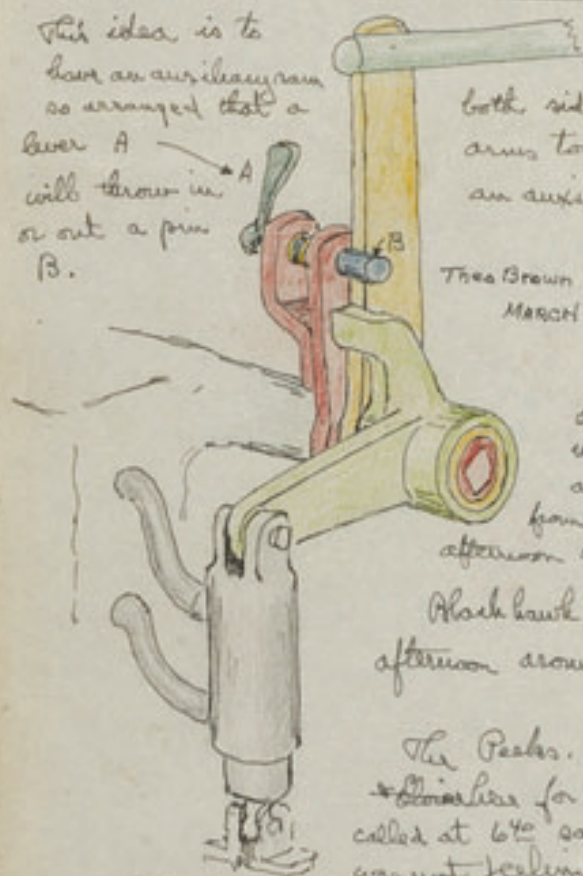 This idea is to
have an auxiliary ram
so arranged that a
lever A
will throw in
or out a pin
B.
A
B
both sid
arms to
an auxi
Theo Brown
MARCH
afternoon
Blackhawk
afternoon arou
The Peeks.
for
called at 6 40
was not feelin